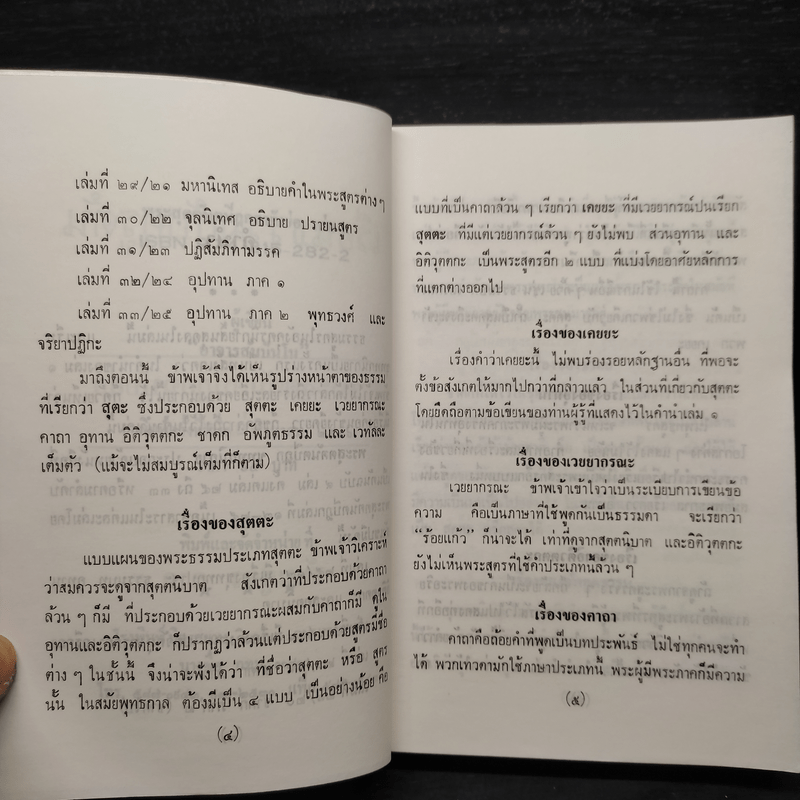 เล่มที่ ๒๙/๒๑ มหานิเทส อธิบายคำในพระสูตรต่างๆ
เล่มที่ ๓๐/๒๒ จุลนิเทศ อธิบาย ปรายนสูตร
เล่มที่ ๓๑/๒๓ ปฏิสัมภิทามรรค
เล่มที่ ๓๒/๒๔ อุปทาน ภาค ๑
เล่มที่ ๓๓/๒๕ อุปทาน ภาค ๒ พุทธวงศ์ และ
จริยาปฏิกะ
มาถึงตอนนี้ ข้าพเจ้าจึงได้เห็นรูปร่างหน้าตาของธรรม
ที่เรียกว่า สุตะ ซึ่งประกอบด้วย สุตตะ เคยยะ เวยยากรณะ
คาถา อุทาน อิติวุตตกะ ชาดก อัพภูตธรรม และ เวทัลละ
เต็มตัว (แม้จะไม่สมบูรณ์เต็มที่ก็ตาม)
เรื่องของสุตตะ
แบบแผนของพระธรรมประเภทสุตตะ ข้าพเจ้าวิเคราะห์
ว่าสมควรจะดูจากสุตตนิบาต สังเกตว่าที่ประกอบด้วยคาถา
ล้วน ๆ ก็มี ที่ประกอบด้วยเวยยากรณะผสมกับคาถาก็มี ดูใน
อุทานและอิติวุตตกะ ก็ปรากฏว่าล้วนแต่ประกอบด้วยสูตรมีชื่อ
ต่าง ๆ ในชั้นนี้ จึงน่าจะฟังได้ว่า ที่ชื่อว่าสุตตะ หรือ สูตร
นั้น ในสมัยพุทธกาล ต้องมีเป็น ๔ แบบ เป็นอย่างน้อย คือ
(๔)
แบบที่เป็นคาถาล้วน ๆ เรียกว่า เคยยะ ที่มีเวยยากรณ์ปนเรียก
สุตตะ ที่มีแต่เวยยากรณ์ล้วน ๆ ยังไม่พบ ส่วนอุทาน และ
อิติวุตตกะ เป็นพระสูตรอีก ๒ แบบ ที่แบ่งโดยอาศัยหลักการ
ที่แตกต่างออกไป
เรื่องของเคยยะ
เรื่องคำว่าเคยยะนี้ ไม่พบร่องรอยหลักฐานอื่น ที่พอจะ
ตั้งข้อสังเกตให้มากไปกว่าที่กล่าวแล้ว ในส่วนที่เกี่ยวกับสุตตะ
โดยยึดถือตามข้อเขียนของท่านผู้รู้ที่แสดงไว้ในคำนำเล่ม ๑
เรื่องของเวยยากรณะ
เวยยากรณะ ข้าพเจ้าเข้าใจว่าเป็นระเบียบการเขียนข้อ
ความ คือเป็นภาษาที่ใช้พูดกันเป็นธรรมดา จะเรียกว่า
“ร้อยแก้ว” ก็น่าจะได้ เท่าที่ดูจากสุตตนิบาต และอิติวุตตกะ
ยังไม่เห็นพระสูตรที่ใช้คำประเภทนี้ล้วน ๆ
เรื่องของคาถา
คาถาคือถ้อยคำที่พูดเป็นบทประพันธ์ ไม่ใช่ทุกคนจะทำ
ได้ พวกเทวดามักใช้ภาษาประเภทนี้ พระผู้มีพระภาคก็มีความ
(๕)